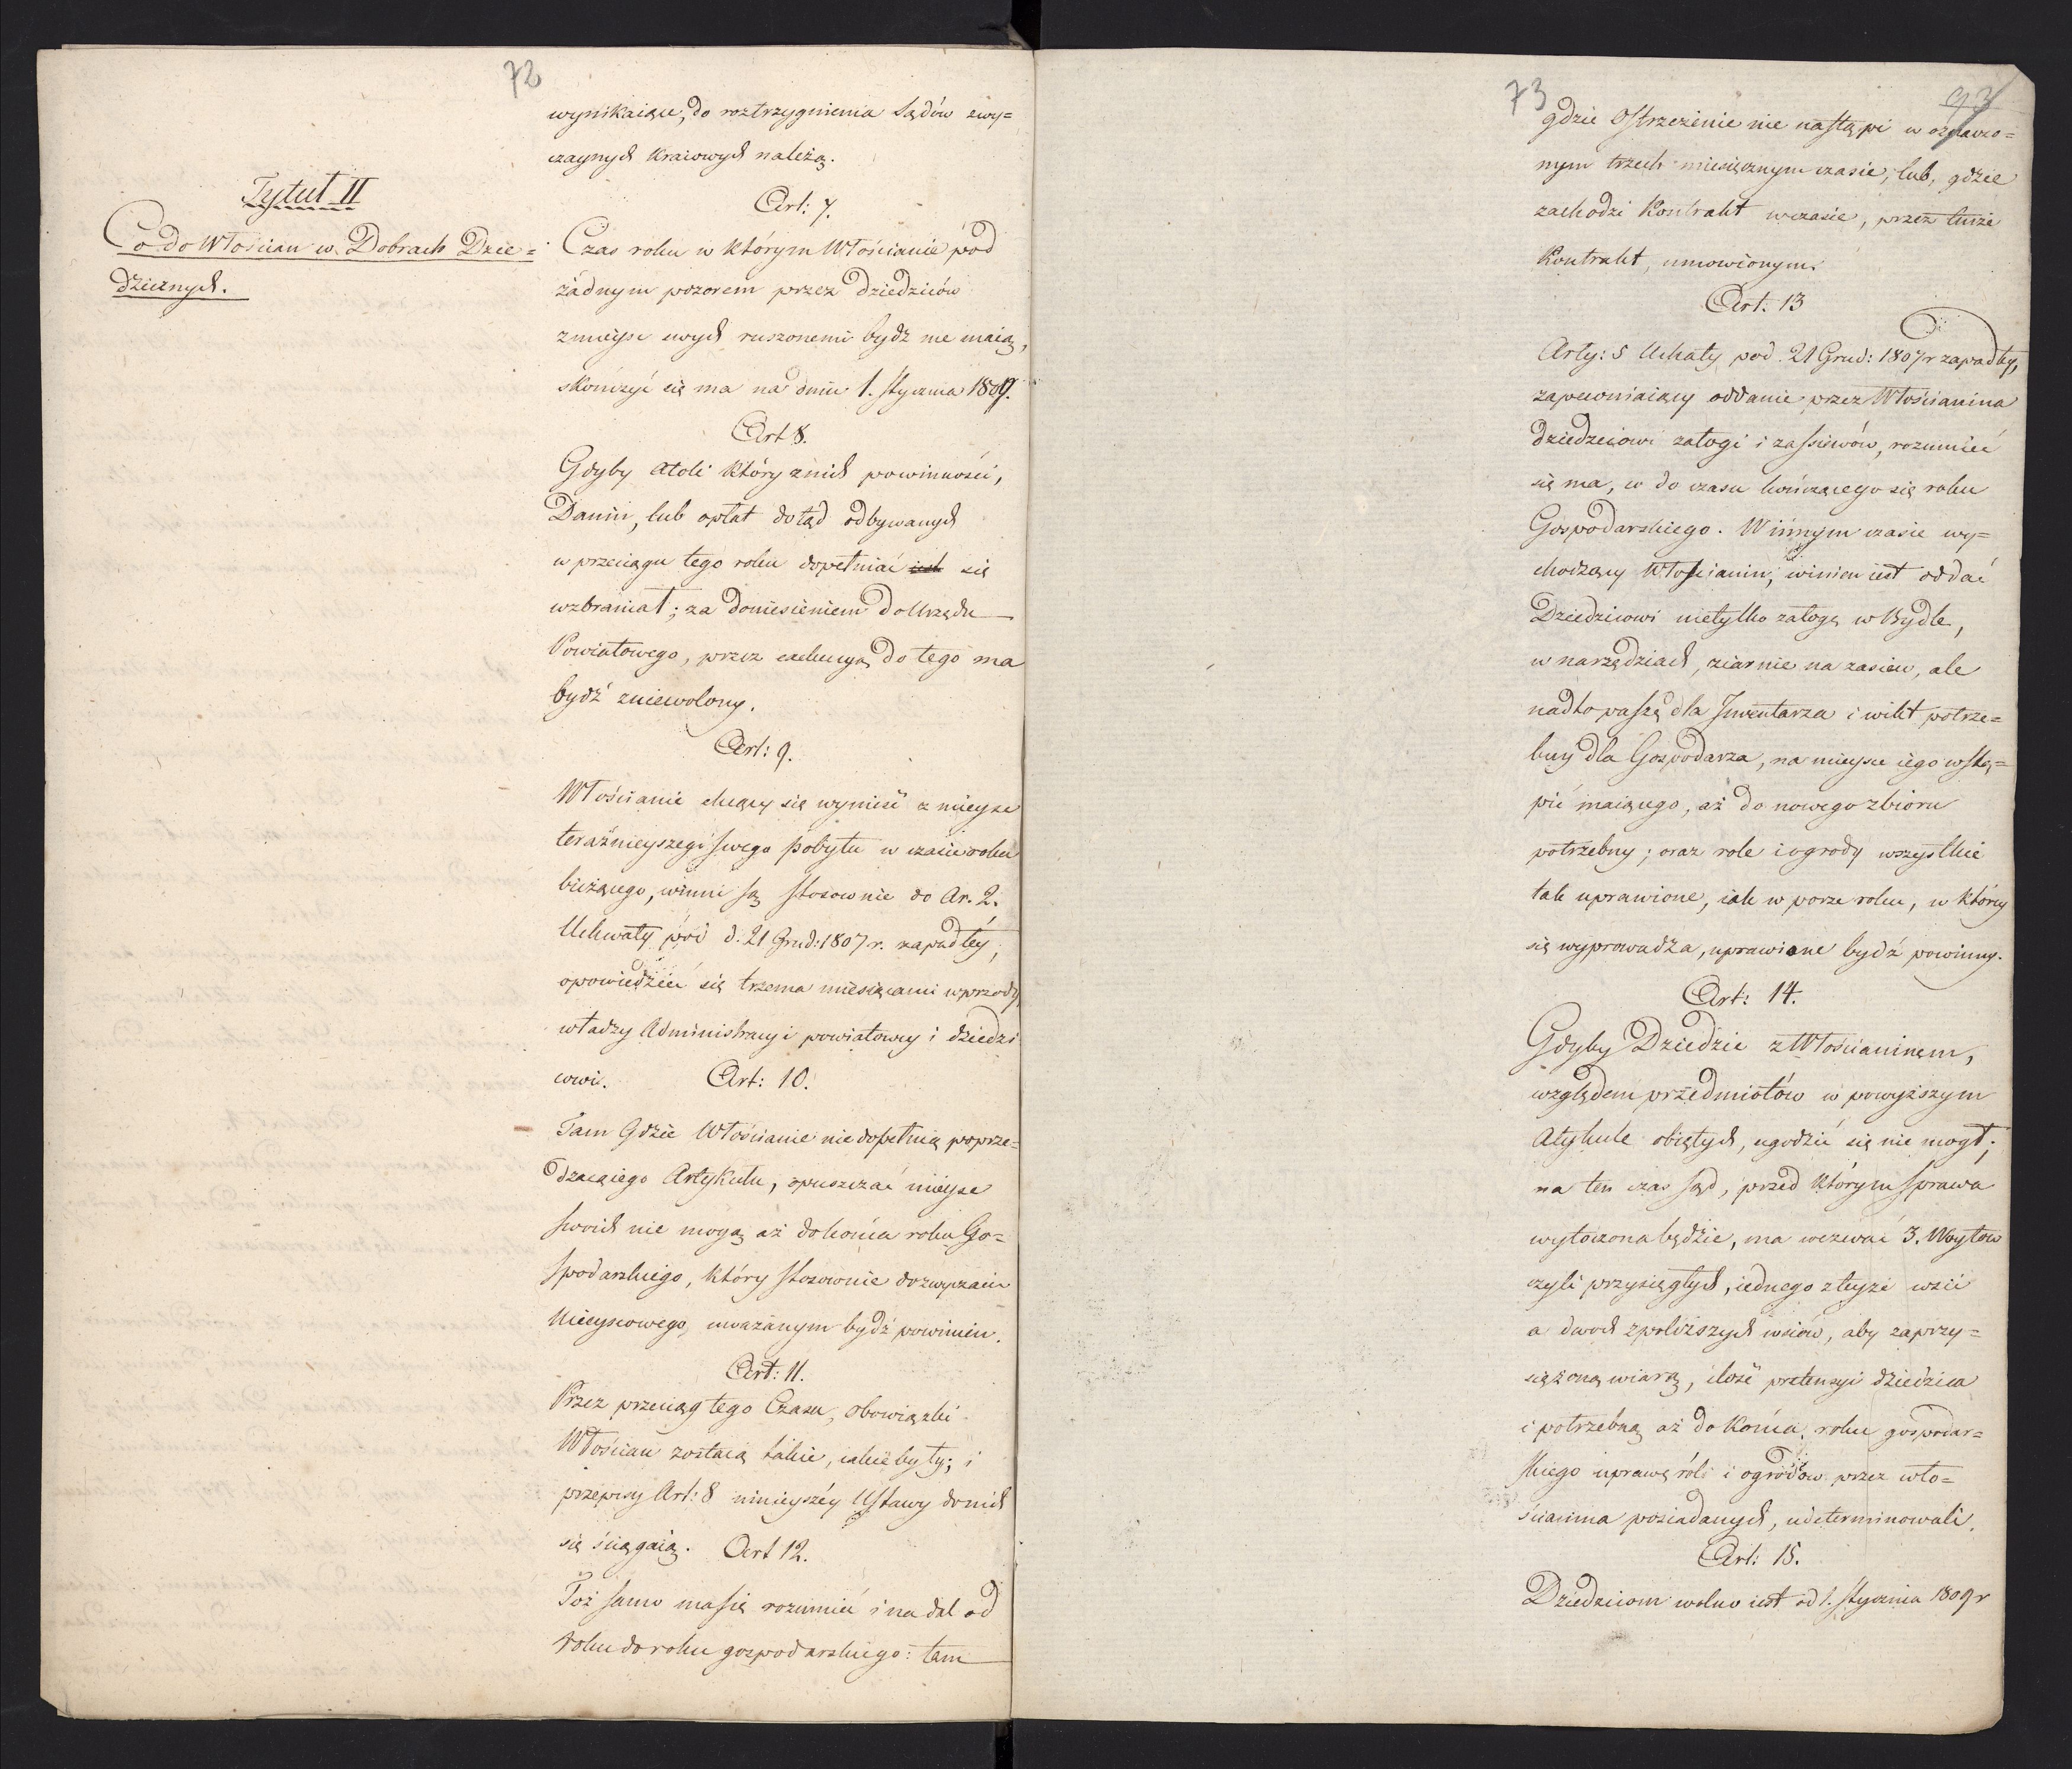 72
wynikaiące, do roztrzygnienia Sądów zwy=
czaynych kraiowych należą.
Tytuł II
Co do Włościan w Dobrach Dzie=
dzicznych.
Art: 7.
Czas roku w którym Włościanie pod
żadnym pozorem przez dziedziców
z mieysc swych ruszonemi bydź nie maią,
skończyć się ma na dniu 1. stycznia 1809.
Art 8.
Gdyby atoli który z nich powinności,
Danin, lub opłat dotąd odbywanych
w przeciągu tego roku dopełniać się
wzbraniał; za doniesieniem do Urzędu
Powiatowego, przez exekucyą do tego ma
bydź zniewolony.
Art: 9.
Włościanie chcący się wynieść z mieysc
teraźnieyszego swego pobytu w czasie roku
bieżącego, winni są stosownie do Ar. 2.
Uchwały pod d. 21 Grud: 1807 r. zapadłey,
opowiedzieć się trzema miesiącami wprzody
władzy Administracyi powiatowey i dziedzi
cowi.
Art: 10.
Tam Gdzie Włościanie nie dopełnią poprze=
dzaiącego Artykułu, opuszczać mieysc
swoich nie mogą aż do końca roku Go=
spodarskiego, który stosownie do zwyczaiu
Mieyscowego, uważanym bydź powinien.
Art: 11.
Przez przeciąg tego Czasu, obowiązki
Włościan zostaią takie, iakie były; i
przepisy Art: 8 ninieyszéy Ustawy do nich
się ściągaią.
Art 12.
Toż samo ma się rozumieć i na dal od
roku do roku gospodarskiego: tam
73
93
gdzie Ostrzeżenie nie nastąpi w oznaczo=
nym trzech miesięcznym czasie, lub, gdzie
zachodzi Kontrakt w czasie, przez tenże
Kontrakt, umowionym.
Art: 13
Arty: 5 Uchały pod. 21 Grud: 1807 r zapadły,
zapewniaiący oddanie przez Włościanina
dziedzicowi załogi i zassiewów, rozumieć
się ma, w do czasu kończącego się roku
Gospodarskiego. W innym czasie wy=
chodzący Włościanin, winien iest oddać
Dziedzicowi nietylko załogę w Bydle,
w narzędziach, ziarnie na zasiew, ale
nadto paszę dla Inwentarza i wikt potrze=
bny dla Gospodarza, na mieysce iego wstą=
pić maiącego, aż do nowego zbioru
potrzebny; oraz role i ogrody wszystkie
tak uprawione, iak w porze roku, w którey
się wyprowadza, uprawione bydź powinny.
Art: 14.
Gdyby Dziedzic z Włościaninem,
względem przedmiotów w powyższym
Atykule obiętych, ugodzić się nie mogł;
na ten czas sąd, przed którym sprawa
wytoczona będzie, ma wezwać 3. Woytow
czyli przysięgłych, iednego z teyże wsi
a dwoch z pobliższych wsiów, aby zaprzy=
siężoną wiarą, ilość pretensyi dziedzica
i potrzebną aż do końca, roku gospodar=
skiego uprawę róli i ogrodów przez wło=
ścianina posiadanych, udeterminowali.
Art: 15.
Dziedzicom wolno iest od 1. stycznia 1809 r